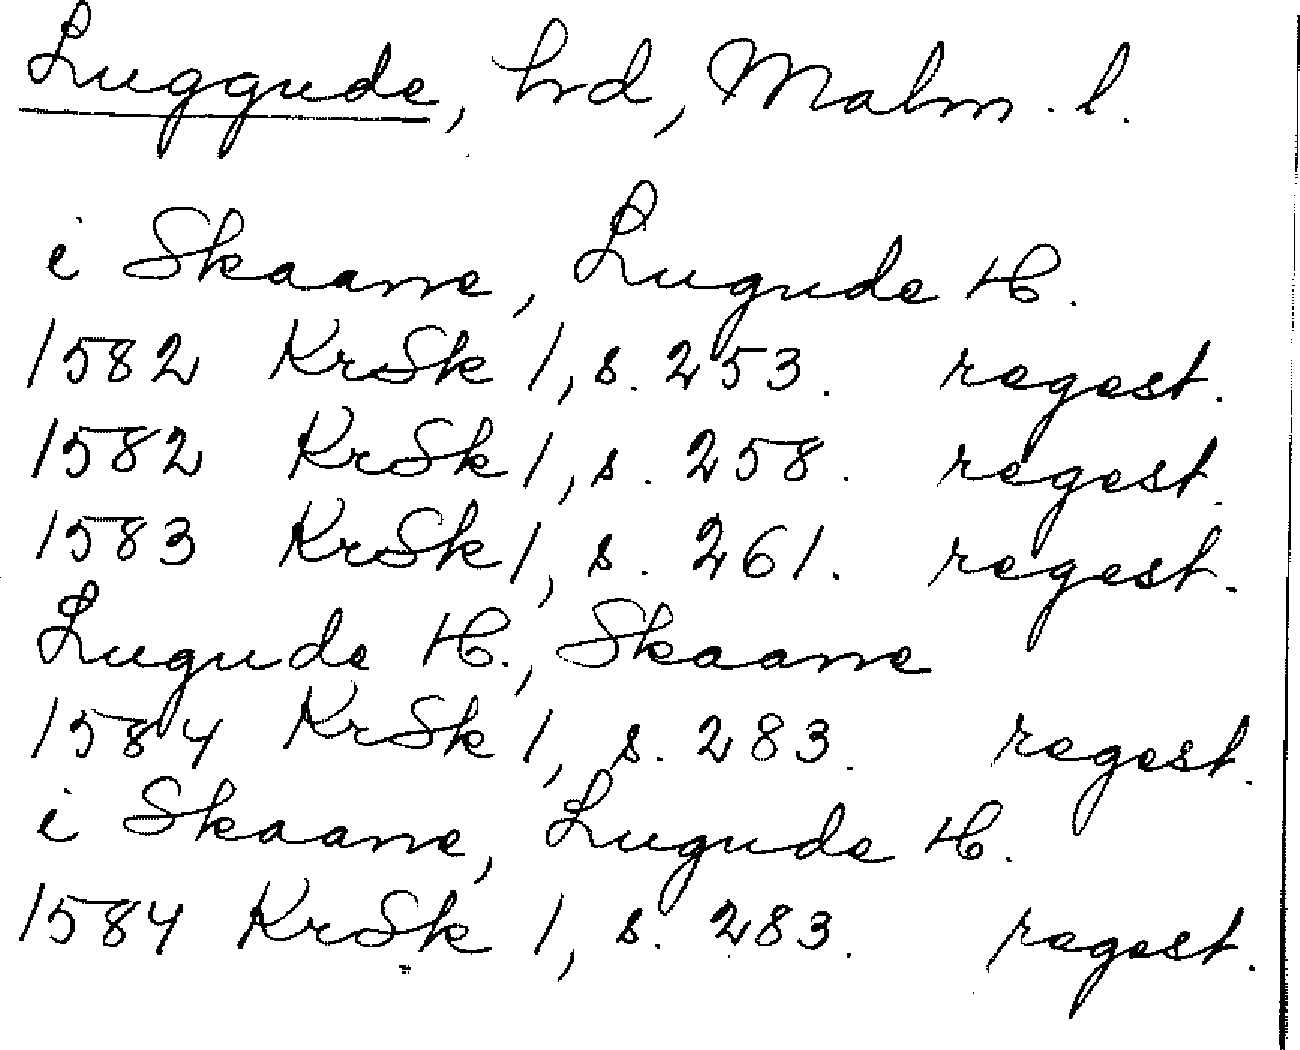 Luggude, hrd, Malm. l.
i Skaane, Lugude H.
1582 KrSk 1, s. 253. regest.
1582 KrSk 1, s. 258. regest.
1583 KrSk 1, s. 261. regest.
Lugude H., Skaane
1584 KrSk 1, s. 283. regest.
i Skaane, Lugude H.
1584 KrSk 1, s. 283. regest.